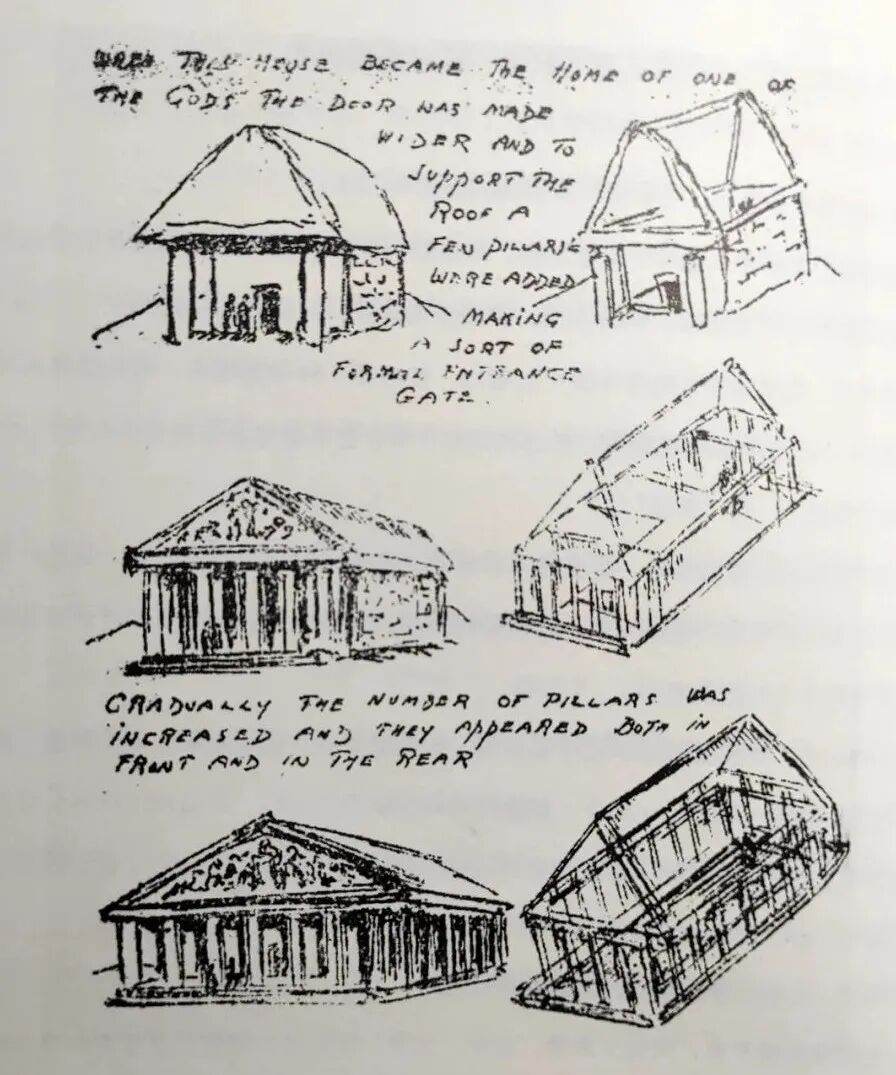 WHEN THIS HOUSE BECAME THE HOME OF ONE OF
THE GODS THE DOOR WAS MADE
WIDER AND TO
SUPPORT THE
ROOF A
FEW PILLARS
WERE ADDED
MAKING
A SORT OF
FORMAL ENTRANCE
GATE.
GRADUALLY THE NUMBER OF PILLARS WAS
INCREASED AND THEY APPEARED BOTH IN
FRONT AND IN THE REAR